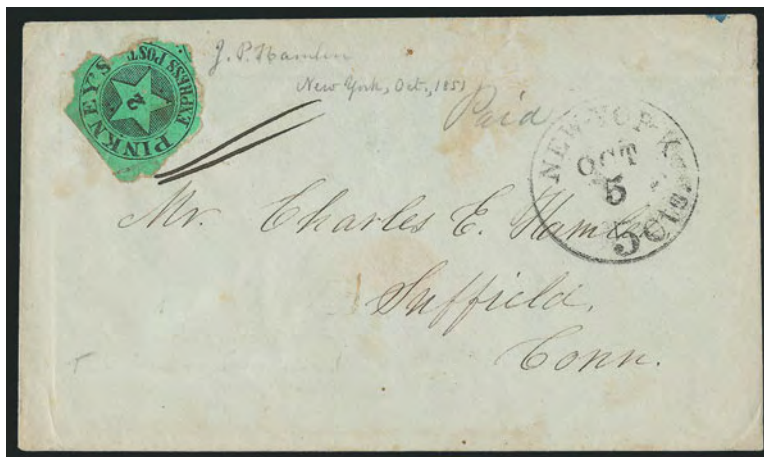 PINKNEY'S
EXPRESS POST
2
J. P. Hamlin
New York, Oct., 1851
Paid
NEW-YORK
OCT
5
5 Cts.
Mr. Charles E. Hamlin
Suffield,
Conn.